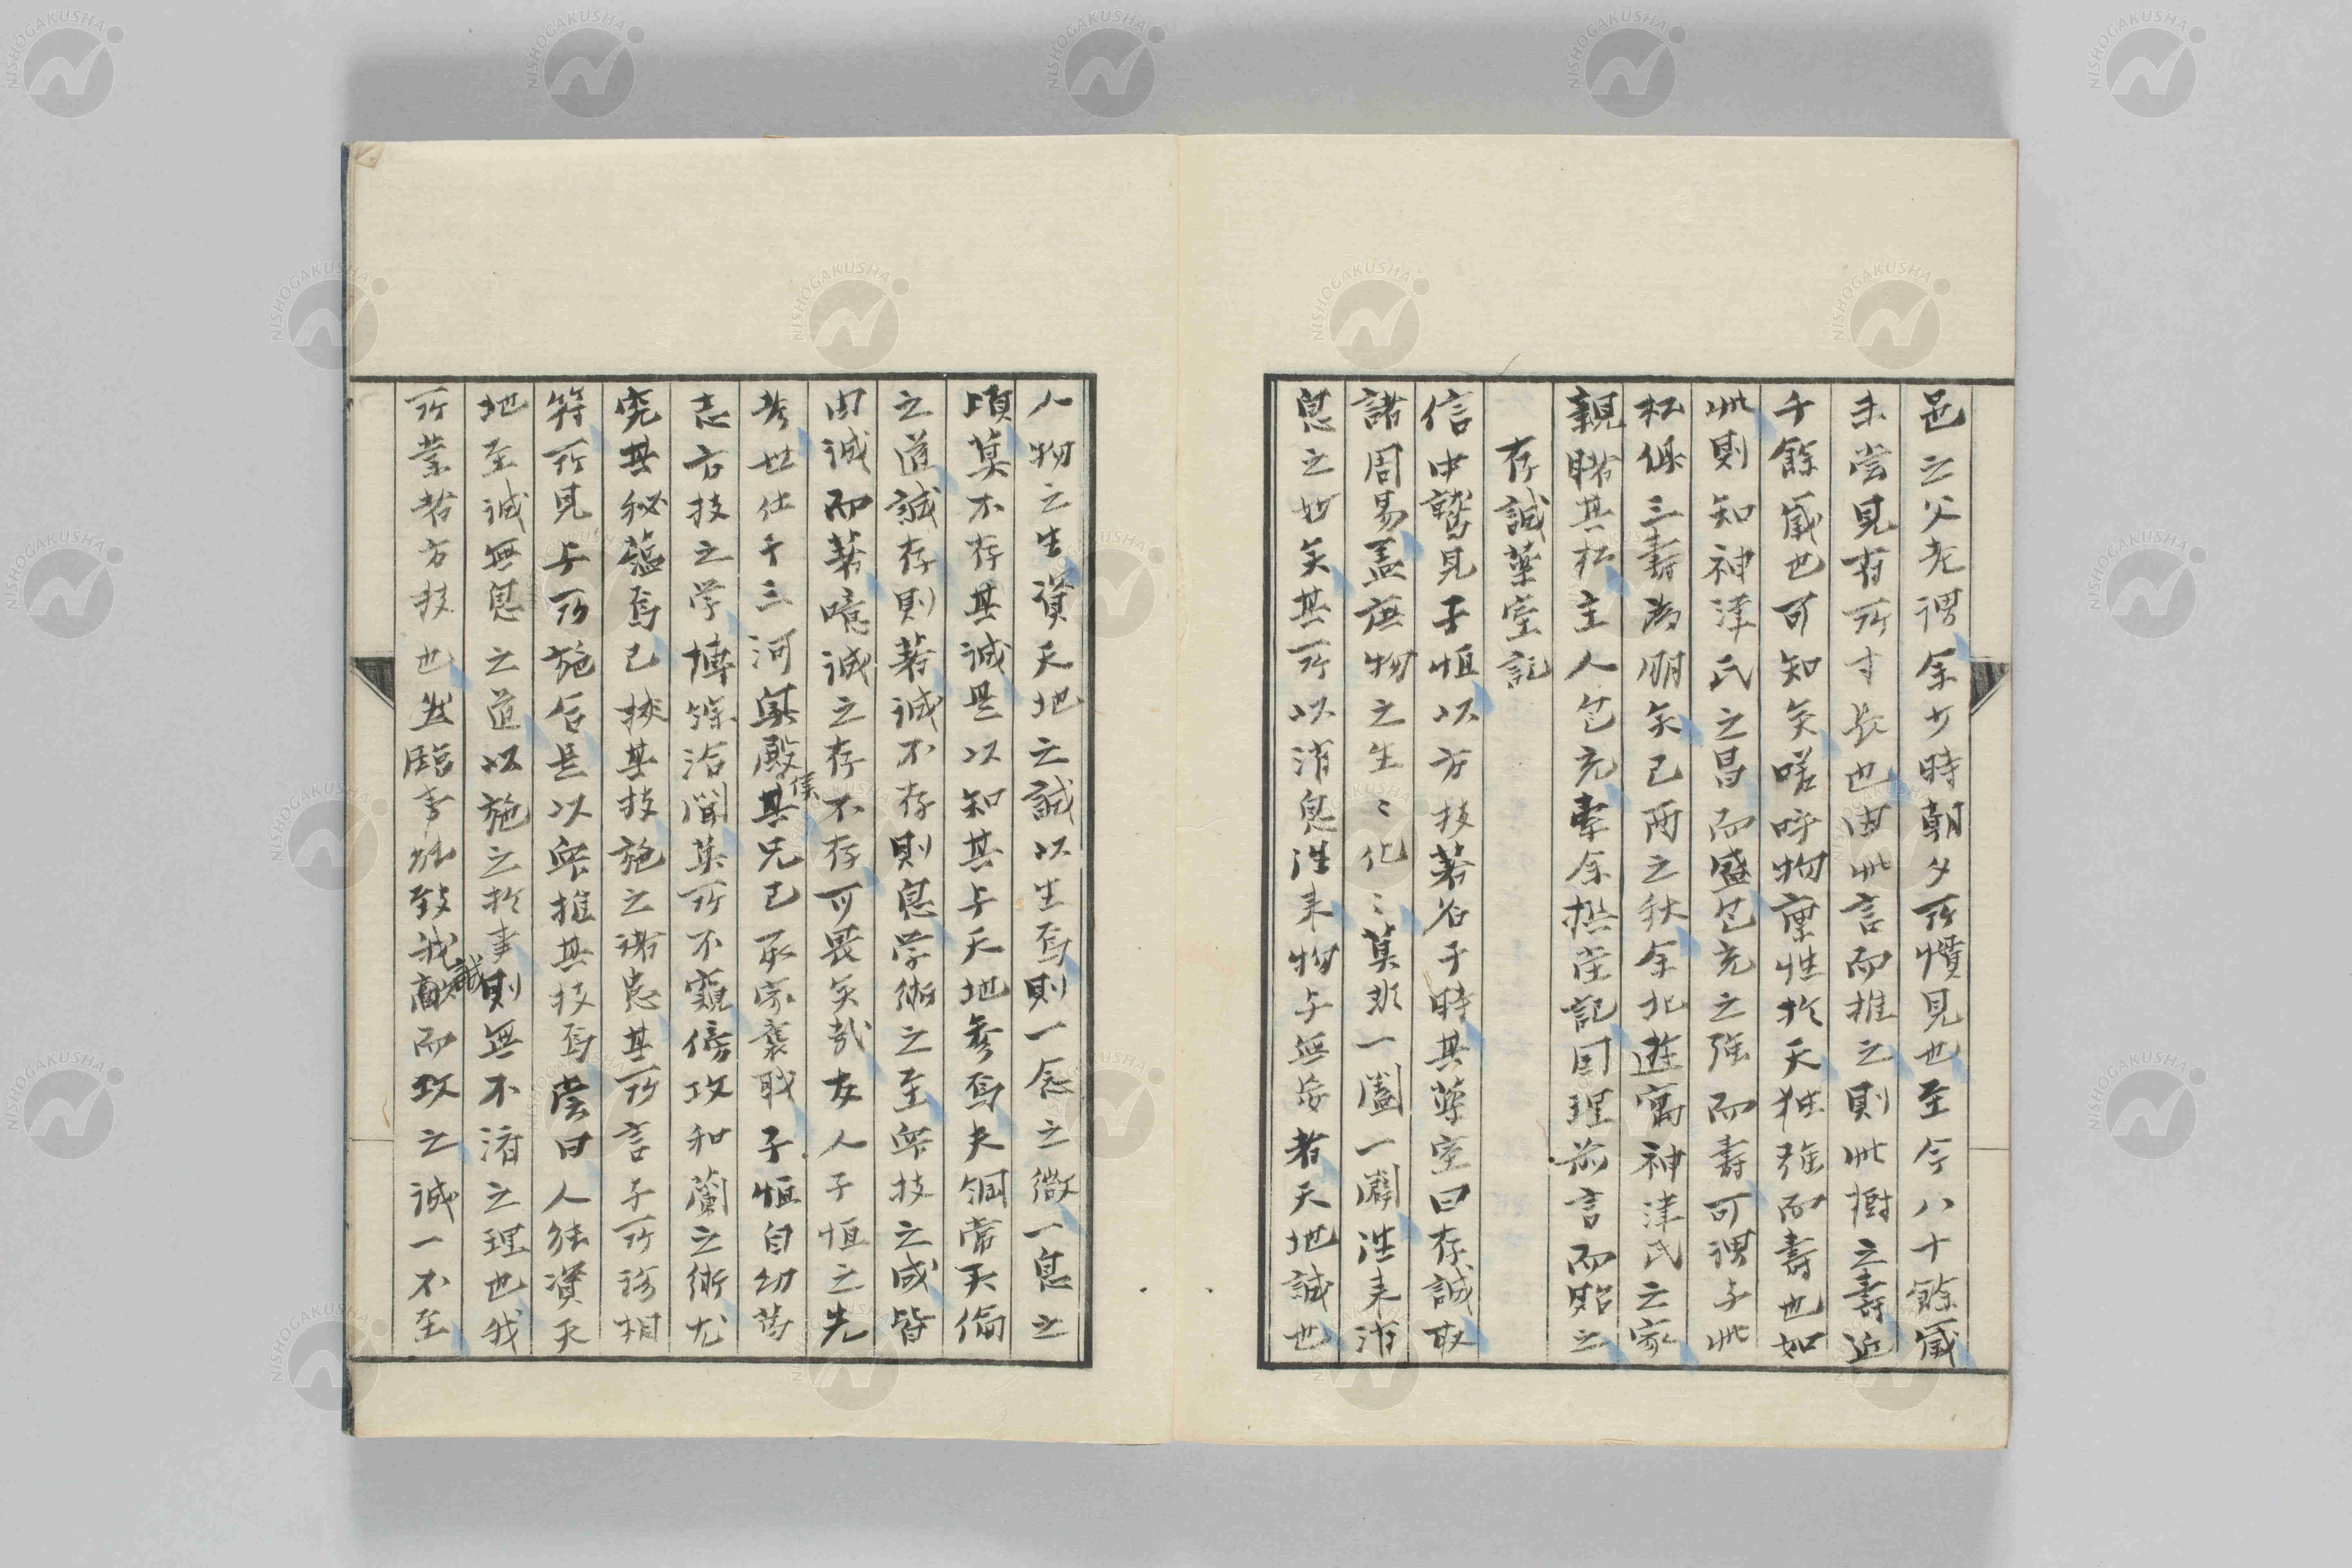 邑之父老謂余少時朝夕所慣見也至今八十餘歲
未嘗見有所寸長也由此言而推之則此樹之壽近
千餘歲也可知矣嗟呼物稟性於天独強而壽也如
此則知神津氏之昌而盛包充之強而壽可謂子此
松俱三壽為朋矣己酉之秋余北遊寓神津氏之家
親睹其松主人包充牽余撰定記因理前言而貽之
存誠藥室記
信中鷲見子恒以方技著名于時其藥室曰存誠取
諸周易蓋庶物之生〻化〻莫非一闔一闢往来消
息之也矣其所以消息往来物与無妄者天地誠也
人物之生資天地之誠以生焉則一念之微一息之
頃莫不存其誠是以知其与天地參焉夫綱常天倫
之道誠存則著誠不存則息学術之至衆技之成皆
由誠而著噫誠之存不存可畏矣哉友人子恒之先
考世仕于三河殿侯其兄已承家襲職子恒自幼
志方技之学博綜洽聞其所不窺傍攻和蘭之術尤
究其秘蘊焉已挾其技施之諸患其所言与所診相
符所見与所施合是以衆推其技焉嘗曰人能資天
地至誠無息之道以施之於事則無不濟之理也我
所業者方技也然臨事能致我誠而攻之誠一不至